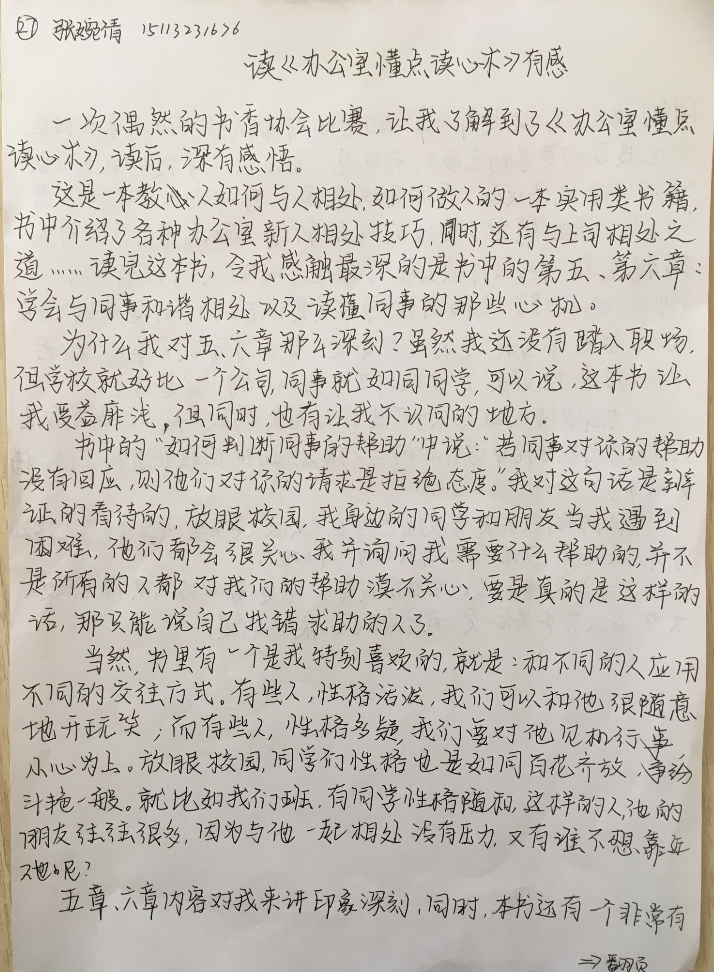 ㉗ 张婉清 15113231676
读《办公室懂点读心术》有感
一次偶然的书香协会比赛,让我了解到了《办公室懂点
读心术》,读后,深有感悟。
这是一本教人如何与人相处,如何做人的一本实用类书籍,
书中介绍了各种办公室新人相处技巧,同时,还有与上司相处之
道……读完这本书,令我感触最深的是书中的第五、第六章:
学会与同事和谐相处以及读懂同事的那些心机。
为什么我对五、六章那么深刻?虽然我还没有踏入职场,
但学校就好比一个公司,同事就如同同学,可以说,这本书让
我受益靡浅。但同时,也有让我不认同的地方。
书中的“如何判断同事的帮助”中说:“若同事对你的帮助
没有回应,则他们对你的请求是拒绝态度。”我对这句话是辨
证的看待的,放眼校园,我身边的同学和朋友当我遇到
困难,他们都会很关心我并询问我需要什么帮助的,并不
是所有的人都对我们的帮助漠不关心,要是真的是这样的
话,那只能说自己找错求助的人了。
当然,书里有一个是我特别喜欢的,就是:和不同的人应用
不同的交往方式。有些人,性格活泼,我们可以和他很随意
地开玩笑;而有些人,性格多疑,我们要对他见机行事,
小心为上。放眼校园,同学们性格也是如同百花齐放,争纷
斗艳一般。就比如我们班,有同学性格随和,这样的人,他的
朋友往往很多,因为与他一起相处没有压力,又有谁不想靠近
他呢?
五章、六章内容对我来讲印象深刻,同时,本书还有一个非常有
⇒翻页